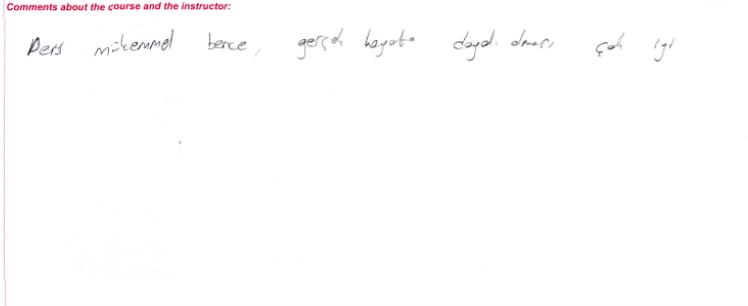 Comments about the course and the instructor:
Ders mükemmel bence, gerçek hayata dayalı olması çok iyi